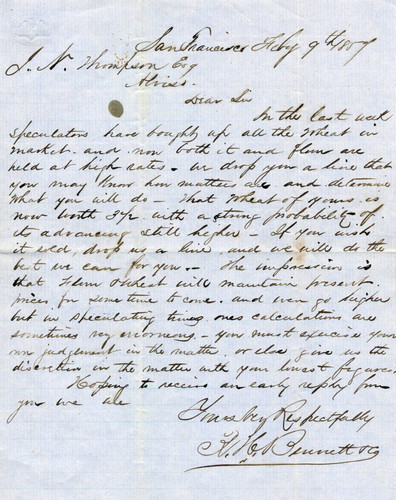 San Francisco Feby 9th 1857
J. N. Thompson Esq
Alviso
Dear Sir
In the last week
speculators have bought up all the Wheat in
market. and now both it and flour are
held at high rates - we drop you a line that
you may know how matters are and determine
what you will do - That Wheat of yours is
now worth 3½ with a strong probability of
its advancing still higher - If you wish
it sold, drop us a line. and we will do the
best we can for you. - The impression is
that Flour & Wheat will maintain present
prices for some time to come. and even go higher
but in speculating times ones calculations are
sometimes very erroneous - you must exercise your
own judgement in the matter. or else give us the
discretion in the matter with your lowest figures.
Hoping to receive an early reply from
you we are
Yours Very Respectfully
H. Bennett & Co